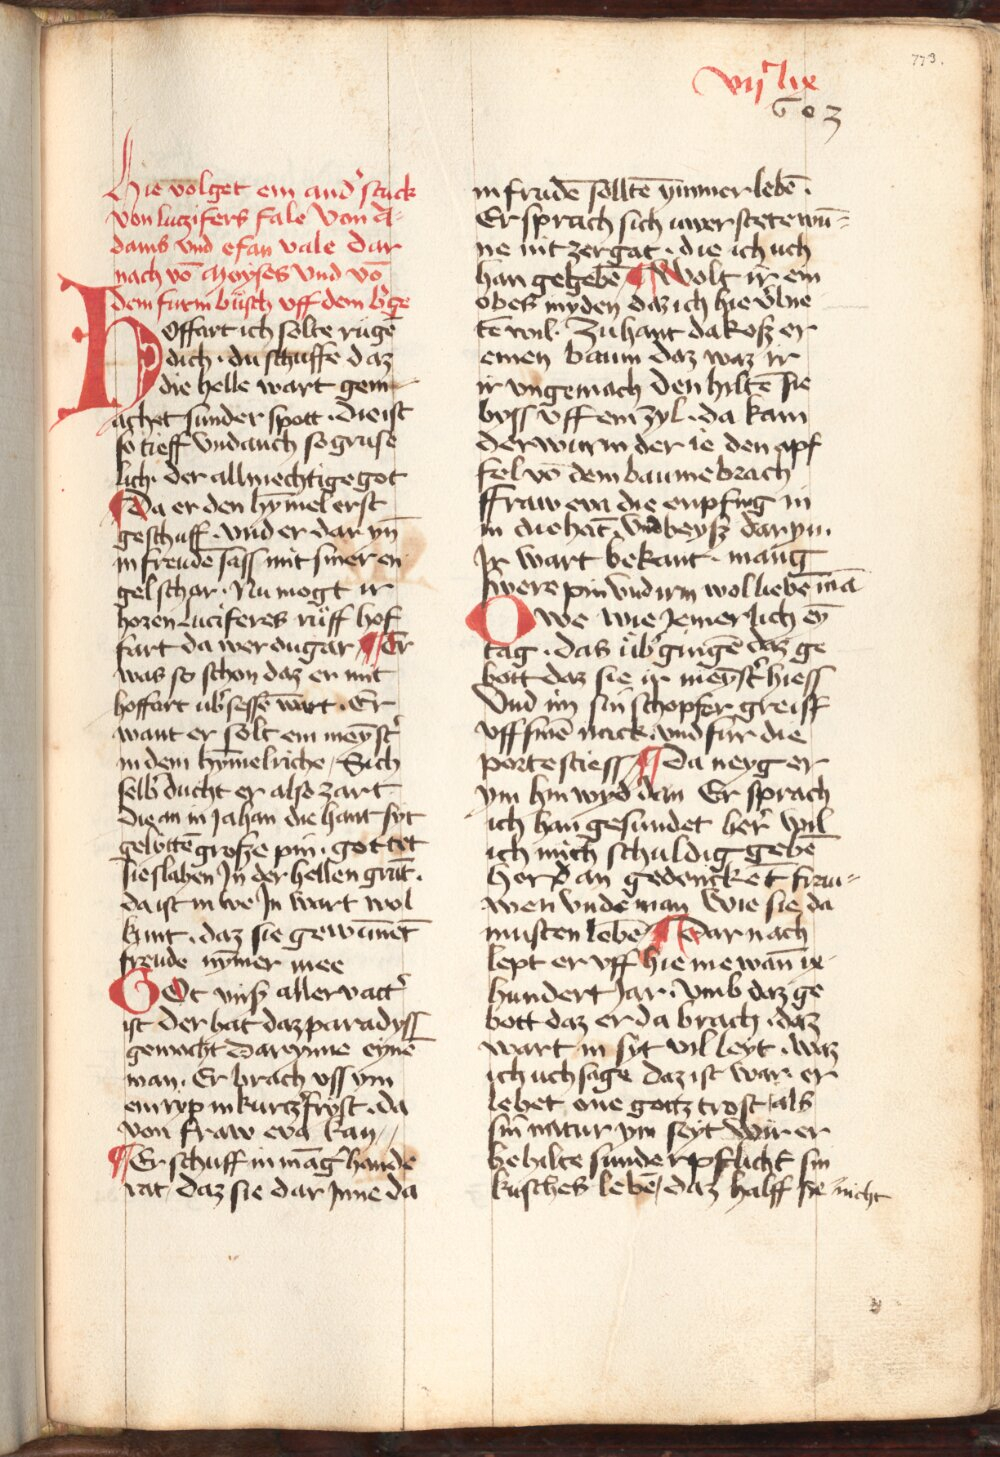 773.
vijc lix
G o 3
Hie volget ein and' stuck
von lutzifers fale von A-
dams vnd efan vale dar
nach vō Moyses vnd vō
dem furin būsch vff dem b'ge
Hoffart ich solte rügē
dich · du schuffe daz
die helle wart gem
achet sunder spott · die ist
so tieff vnd auch so gruse
lich · der allmechtige got
Da er den hȳmel erst
geschuff · vnd er dar yn̄
in freudē sass mit siner en
gel schar · Nu mogt ir
horen Luciferes rüff hof
fart da wer dugar ¶ Er
was so schon daz er mit
hoffart vb'sessē wart · Er
want er solt ein meyst'
in dem hȳmelriche / Sich
selb' ducht er also zart
Die an in jahan die hant syt
gelyttē große pin · got tet
sie slahen Jn der hellen grūt ·
da ist in we Jn wart wol
kunt · daz sie gewūnēt
freude nȳmer mee
Got vnß aller vatt'
ist der hat daz paradyß
gemacht Dar ynne eynē
man · Er brach vss ym
ein ryp in kurtz' fryst · da
von fraw eva kan //
¶ Er schuff in māg' hande
rat / daz sie dar Jnne da
in frudē solltē ȳmmer lebē ·
Er sprach sich uwer stete wū-
ne nit zergat · die ich uch
han gegebē ¶ Wolt ir ein
obes myden daz ich hie v'bne
tē wil · Zu hant da koß er
einen baum daz waz ir
ir vngemach den hiltē sie
byss vff ein zyl · da kam
der wurm der ie den apf
fel vō dem baume brach
ffraw eva die enpfing in
in die hāt vnd beyß dar yn ·
Jr wart bekant · māng
swere pin vnd irm wol liebē mā
Owe wie jemerlich eȳ
tag · das üb'gingē daz ge
bott daz sie ir meyst' hiess
Vnd im sin schopfer greiff
vff sinē nack · vnd für die
porte stiess / ¶ Da neyg er
ym hin wyd' dan Er sprach
ich han gesundet her' wil
ich mich schuldig gebē
her dan gedencket frau-
wen vnde man wie sie da
musten lebē / ¶ Dar nach
lept er vff hie me wan̄ ix
hundert Jar · vmb daz ge
bott daz er da brach · daz
wart in syt vil leyt · waz
ich uch sage daz ist war · er
lebet one gottz trost / als
sin̄ natur ym seyt Wir er
behilte sunder pflicht sin
kusches lebē / daz halff sie nicht